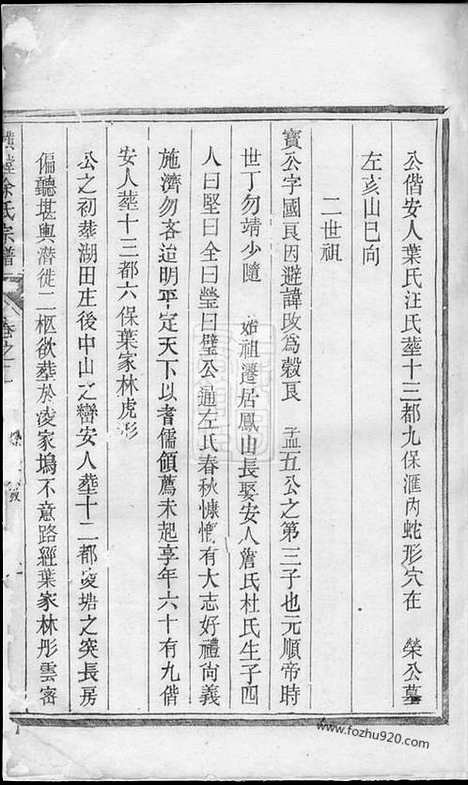 公偕安人葉氏汪氏塟十三都九保滙內蛇形穴在 榮公墓
左亥山巳向
二世祖
寳公字國艮因避諱攺為榖艮 孟五公之第三子也元順帝時
世丁勿靖少隨 始祖遷居鳳山長娶安人詹氏杜氏生子四
人曰堅曰全曰瑩曰璧公通左氏春秋慷慨有大志好禮尙義
施濟勿吝迨明平定天下以耆儒領薦未起享年六十有九偕
安人塟十三都六保葉家林虎形
公之初塟湖田庄後中山之巒安人塟十二都凌塘之突長房
偏聽堪輿潛徙二柩欲塟於凌家塢不意路經葉家林彤雲密
余氏宗譜 卷之
www.fozhu920.com